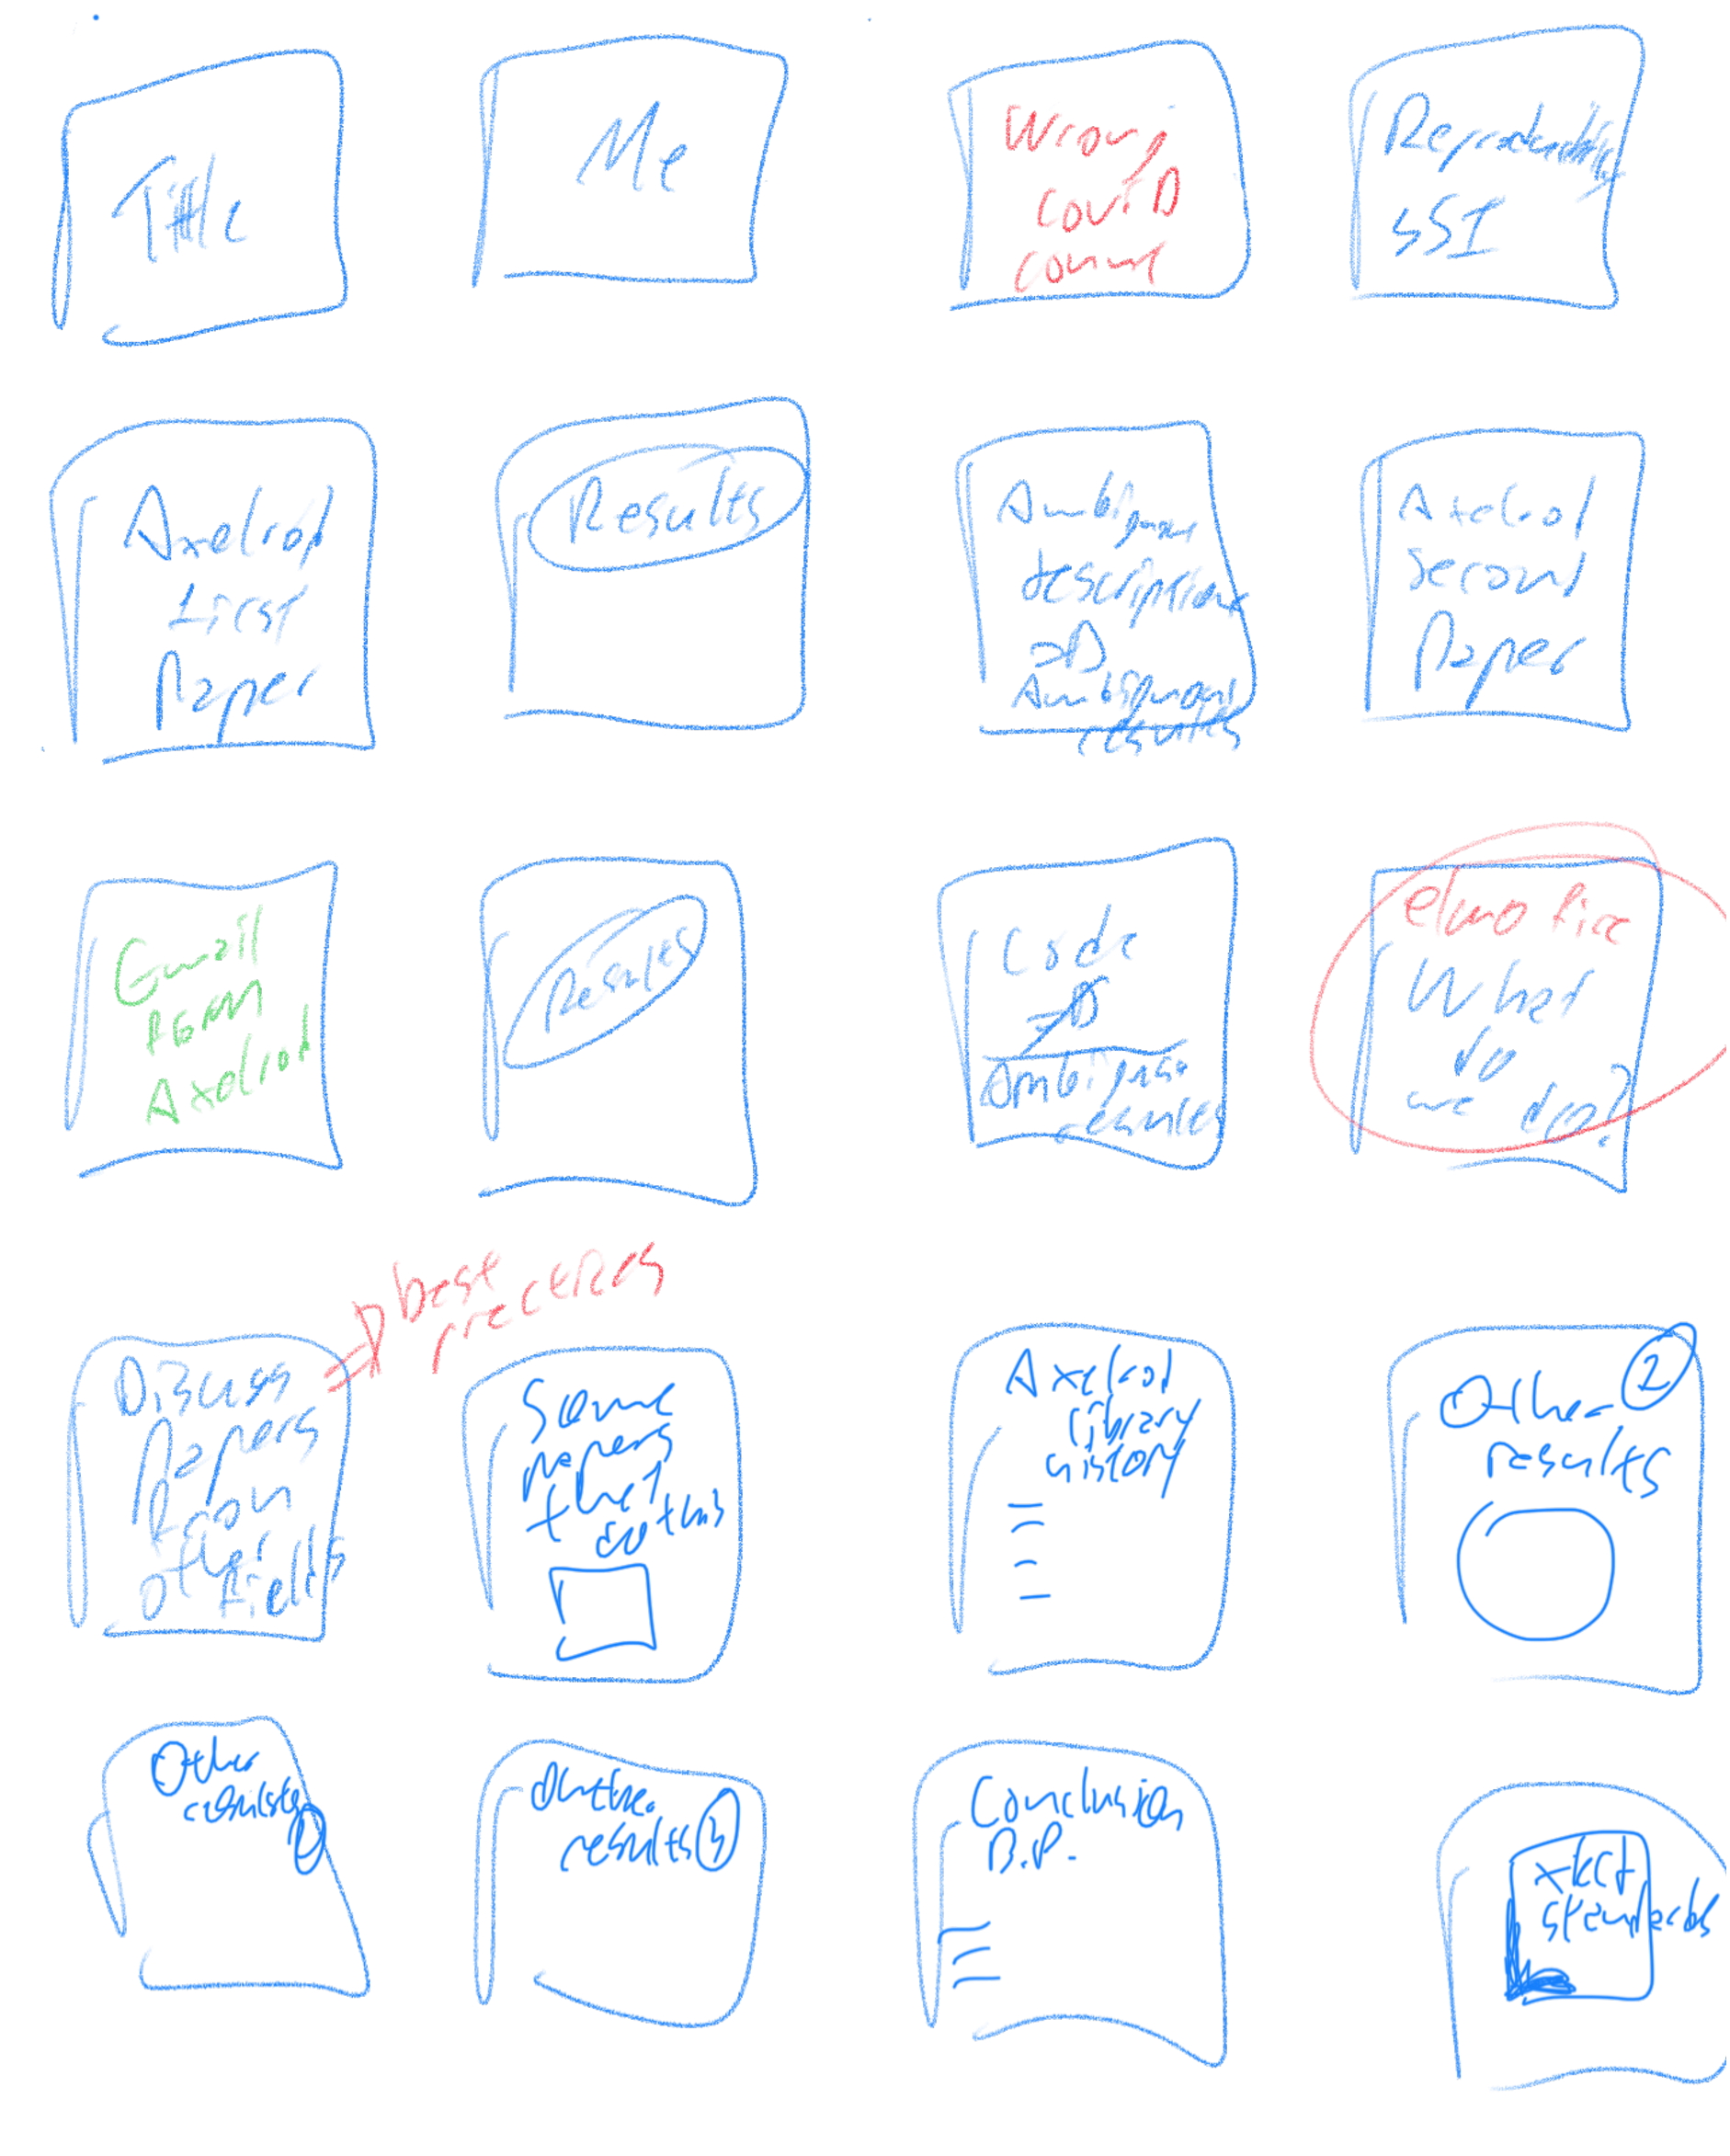 Title
Me
Wrong
COVID
count
Reproducibility
SSI
Axelrod
first
Paper
Results
Ambiguous
description
=>
Ambiguous
results
Axelrod
second
Paper
Gmail
from
Axelrod
Results
Code
Ambiguous
results
elmo fire
What
do
we do?
=> best
practices
Discuss
Papers
from
other
fields
Some
papers
that
do this
Axelrod
library
history
Other
results
Other
results
results 3
Conclusion
B.P.
xkcd
standards